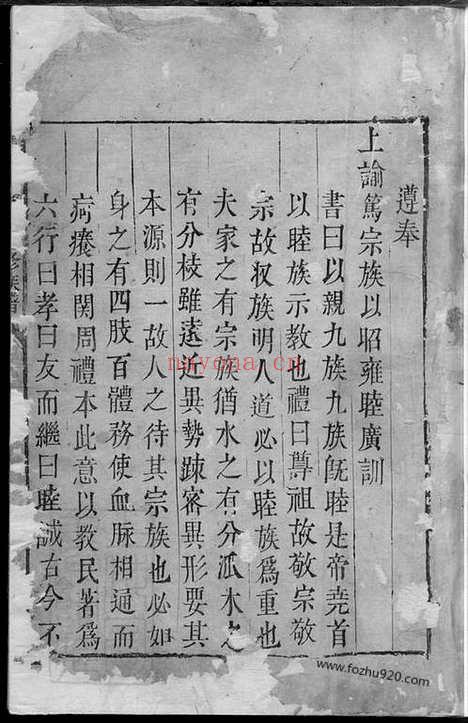 遵奉
上諭篤宗族以昭雍睦廣訓
書曰以親九族九族旣睦是帝堯首
以睦族示教也禮曰尊祖故敬宗敬
宗故收族明人道必以睦族爲重也
夫家之有宗族猶水之有分派木之
有分枝雖遠近異勢踈宻異形要其
本源則一故人之待其宗族也必如
身之有四肢百體務使血脉相通而
疴癢相関周禮本此意以教民著爲
六行曰孝曰友而繼曰睦誠古今不
族譜
nayona.cn
www.fozhu920.com